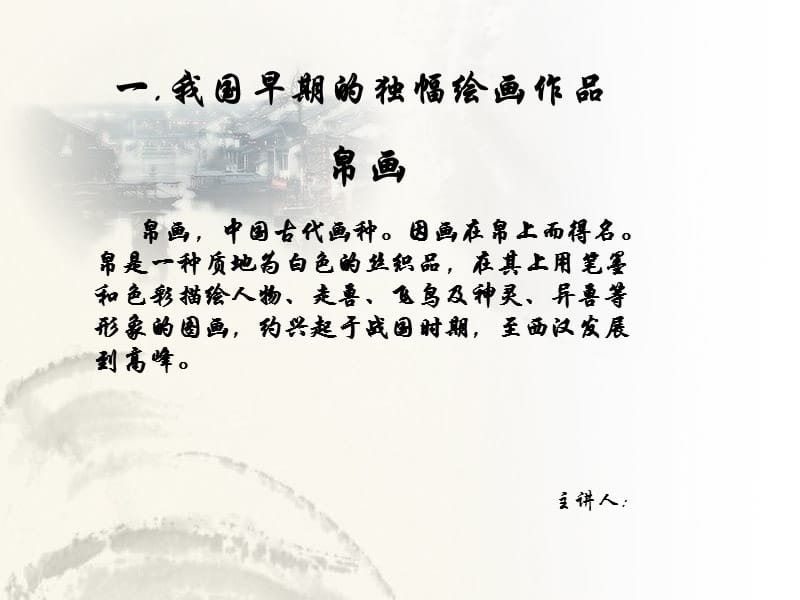 一.我国早期的独幅绘画作品
帛画
帛画，中国古代画种。因画在帛上而得名。
帛是一种质地为白色的丝织品，在其上用笔墨
和色彩描绘人物、走兽、飞鸟及神灵、异兽等
形象的图画，约兴起于战国时期，至西汉发展
到高峰。
主讲人：